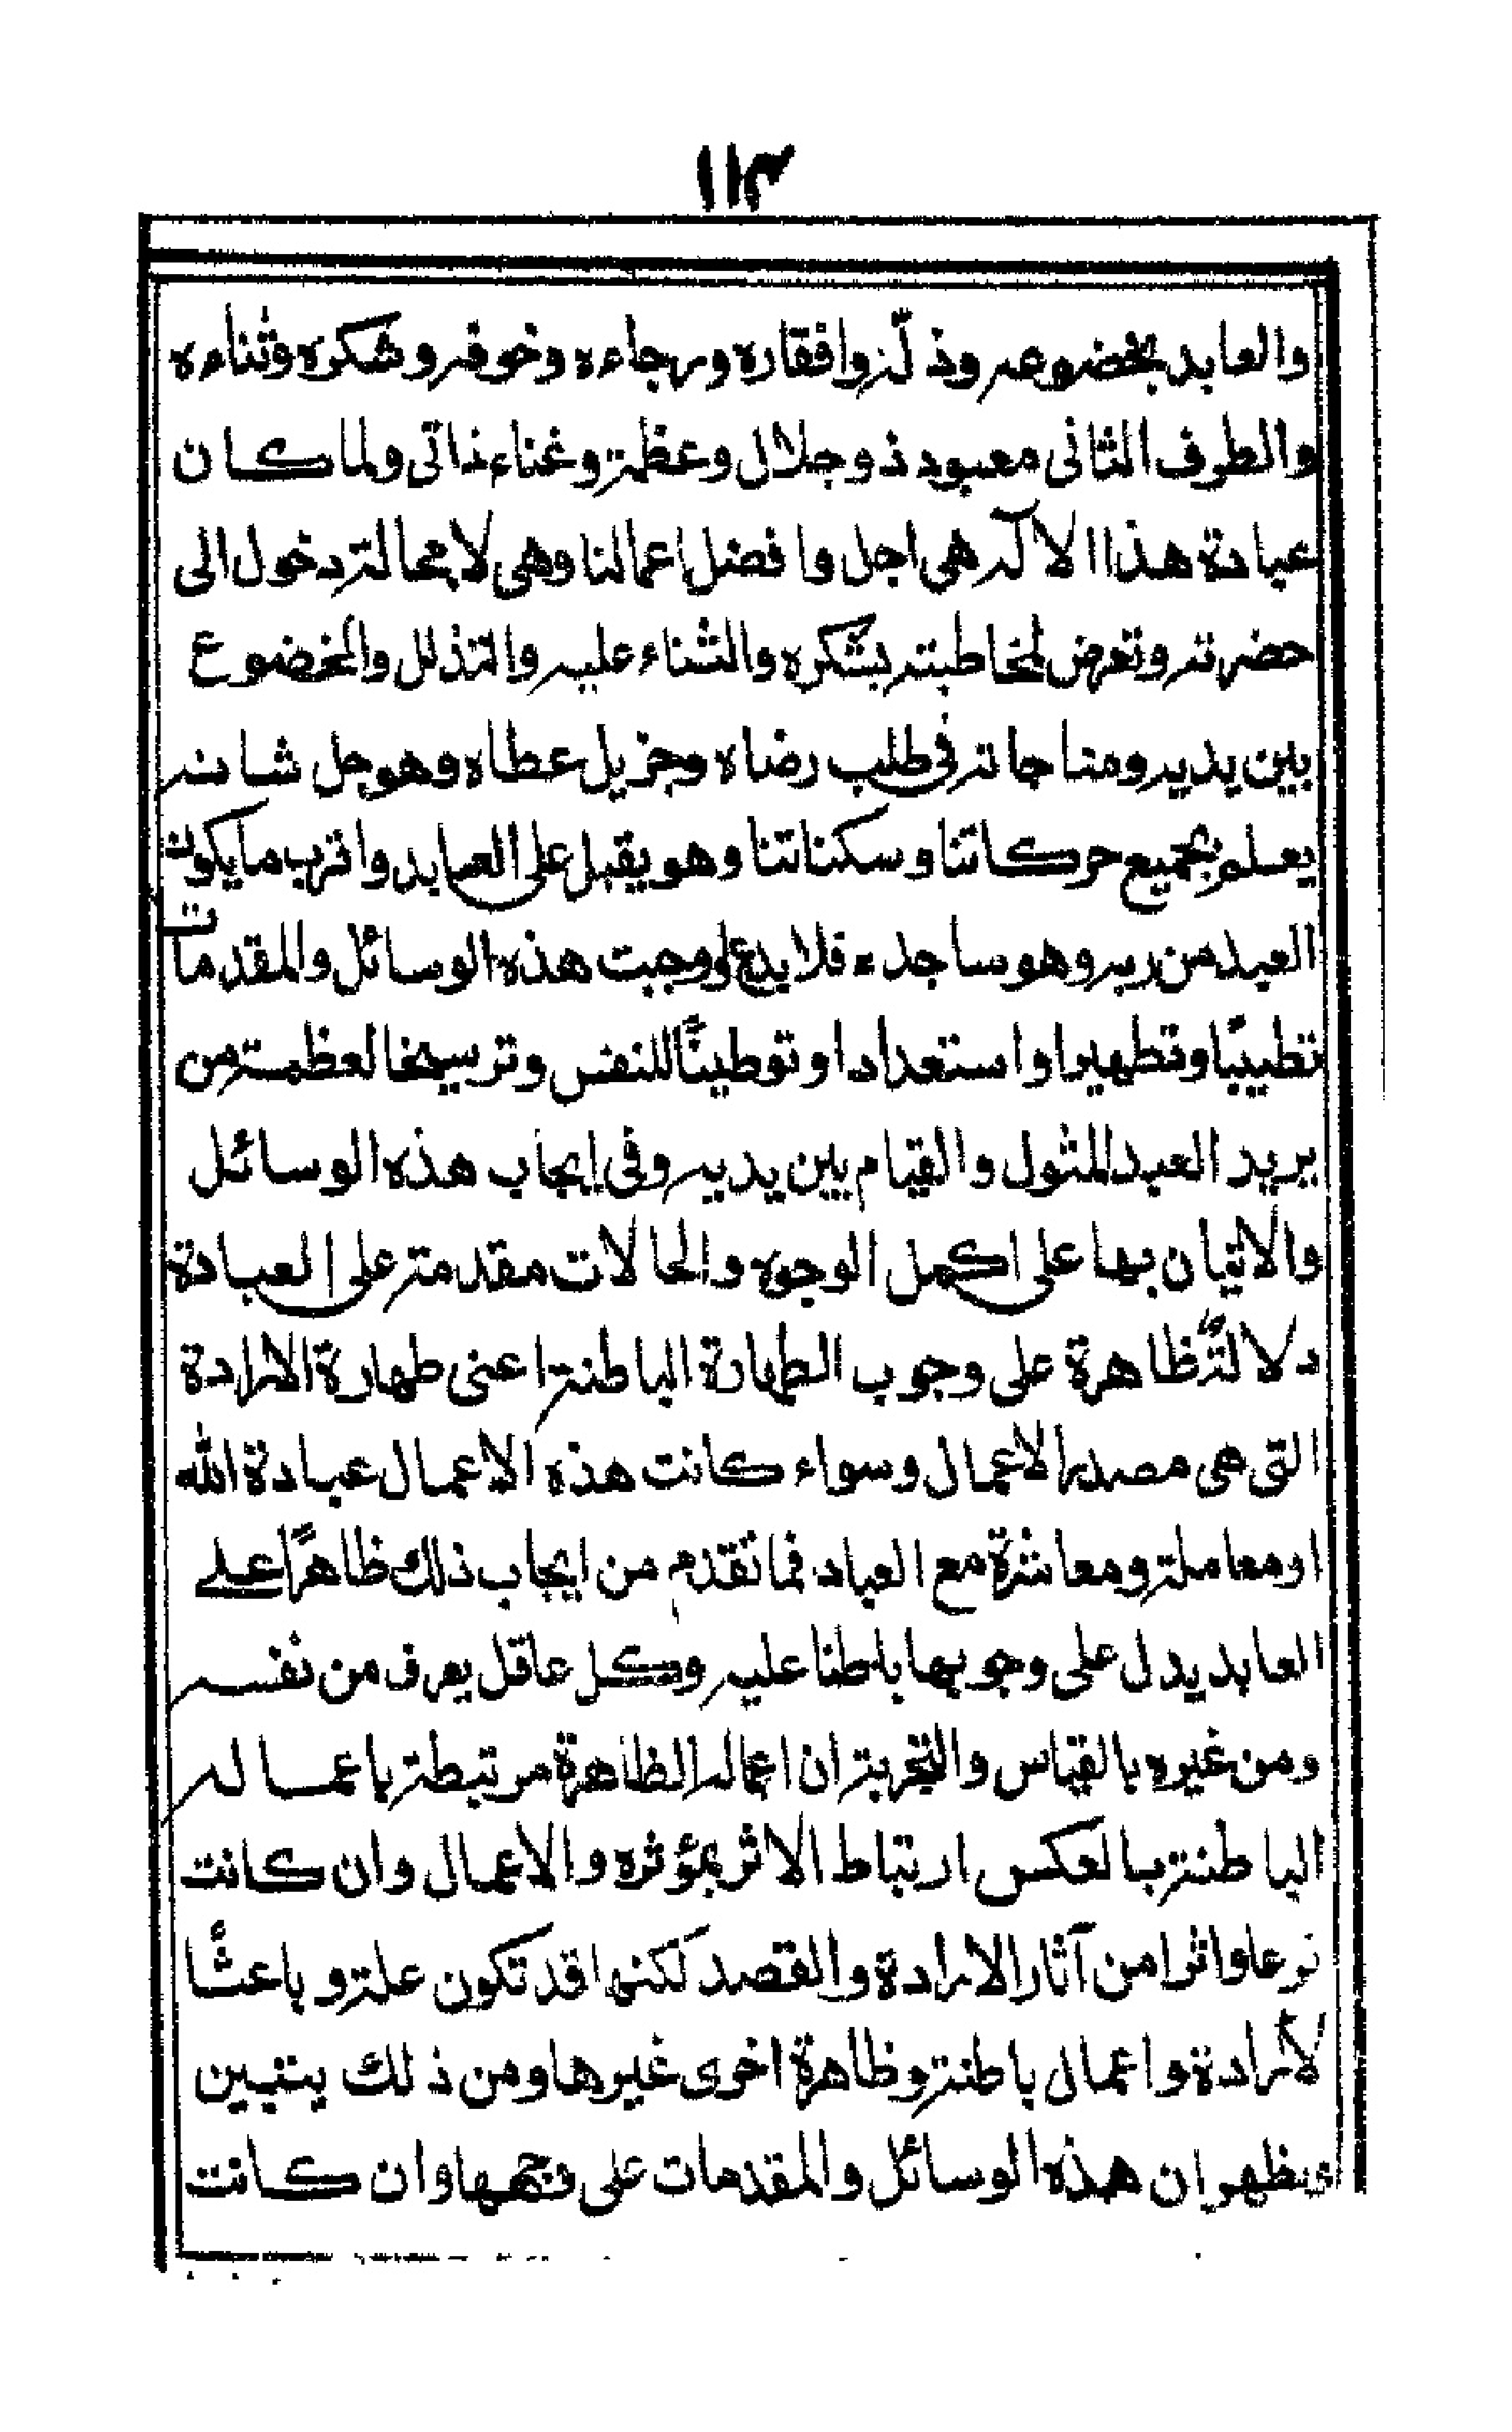 ١١٣
والعابد بخضوعه وذلّه وافقاره ورجاءه وخوفه وشكره وثناءه
والطرف الثانى معبود ذو جلال وعظمة وغناء ذاتى ولما كان
عبادة هذا الاله هى اجل وافضل اعمالنا وهى لا محالة دخول الى
حضرته وتعرض لمخاطبته بشكره والثناء عليه والتذلل والخضوع
بين يديه ومناجاته فى طلب رضاه وجزيل عطاه وهو جل شانه
يعلم بجميع حركاتنا وسكناتنا وهو يقبل على العابد واقرب مايكون
العبد من ربه وهو ساجد فلا بدع لو وجبت هذه الوسائل والمقدمات
تطييبًا وتطهيرا واستعدادا وتوطينًا للنفس وترسيخا لعظمة من
يريد العبد المثول والقيام بين يديه وفى إيجاب هذه الوسائل
والاتيان بها على اكمل الوجوه والحالات مقدمة على العبادة
دلالةٌ ظاهرة على وجوب الطهارة الباطنة اعنى طهارة الارادة
التى هى مصدر الاعمال وسواء كانت هذه الاعمال عبادة الله
او معاملة ومعاشرة مع العباد فما تقدم من ايجاب ذلك ظاهرًا على
العابد يدل على وجوبها باطنا عليه وكل عاقل يعرف من نفسه
ومن غيره بالقياس والتجربة ان اعماله الظاهرة مرتبطة باعماله
الباطنة بالعكس ارتباط الاثر بمؤثره والاعمال وان كانت
فرعا واثرا من آثار الارادة والقصد لكنها قد تكون علة وباعثًا
لأرادة واعمال باطنة وظاهرة اخرى غيرها ومن ذلك يتبين
ويظهر ان هذه الوسائل والمقدمات على وجهها وان كانت